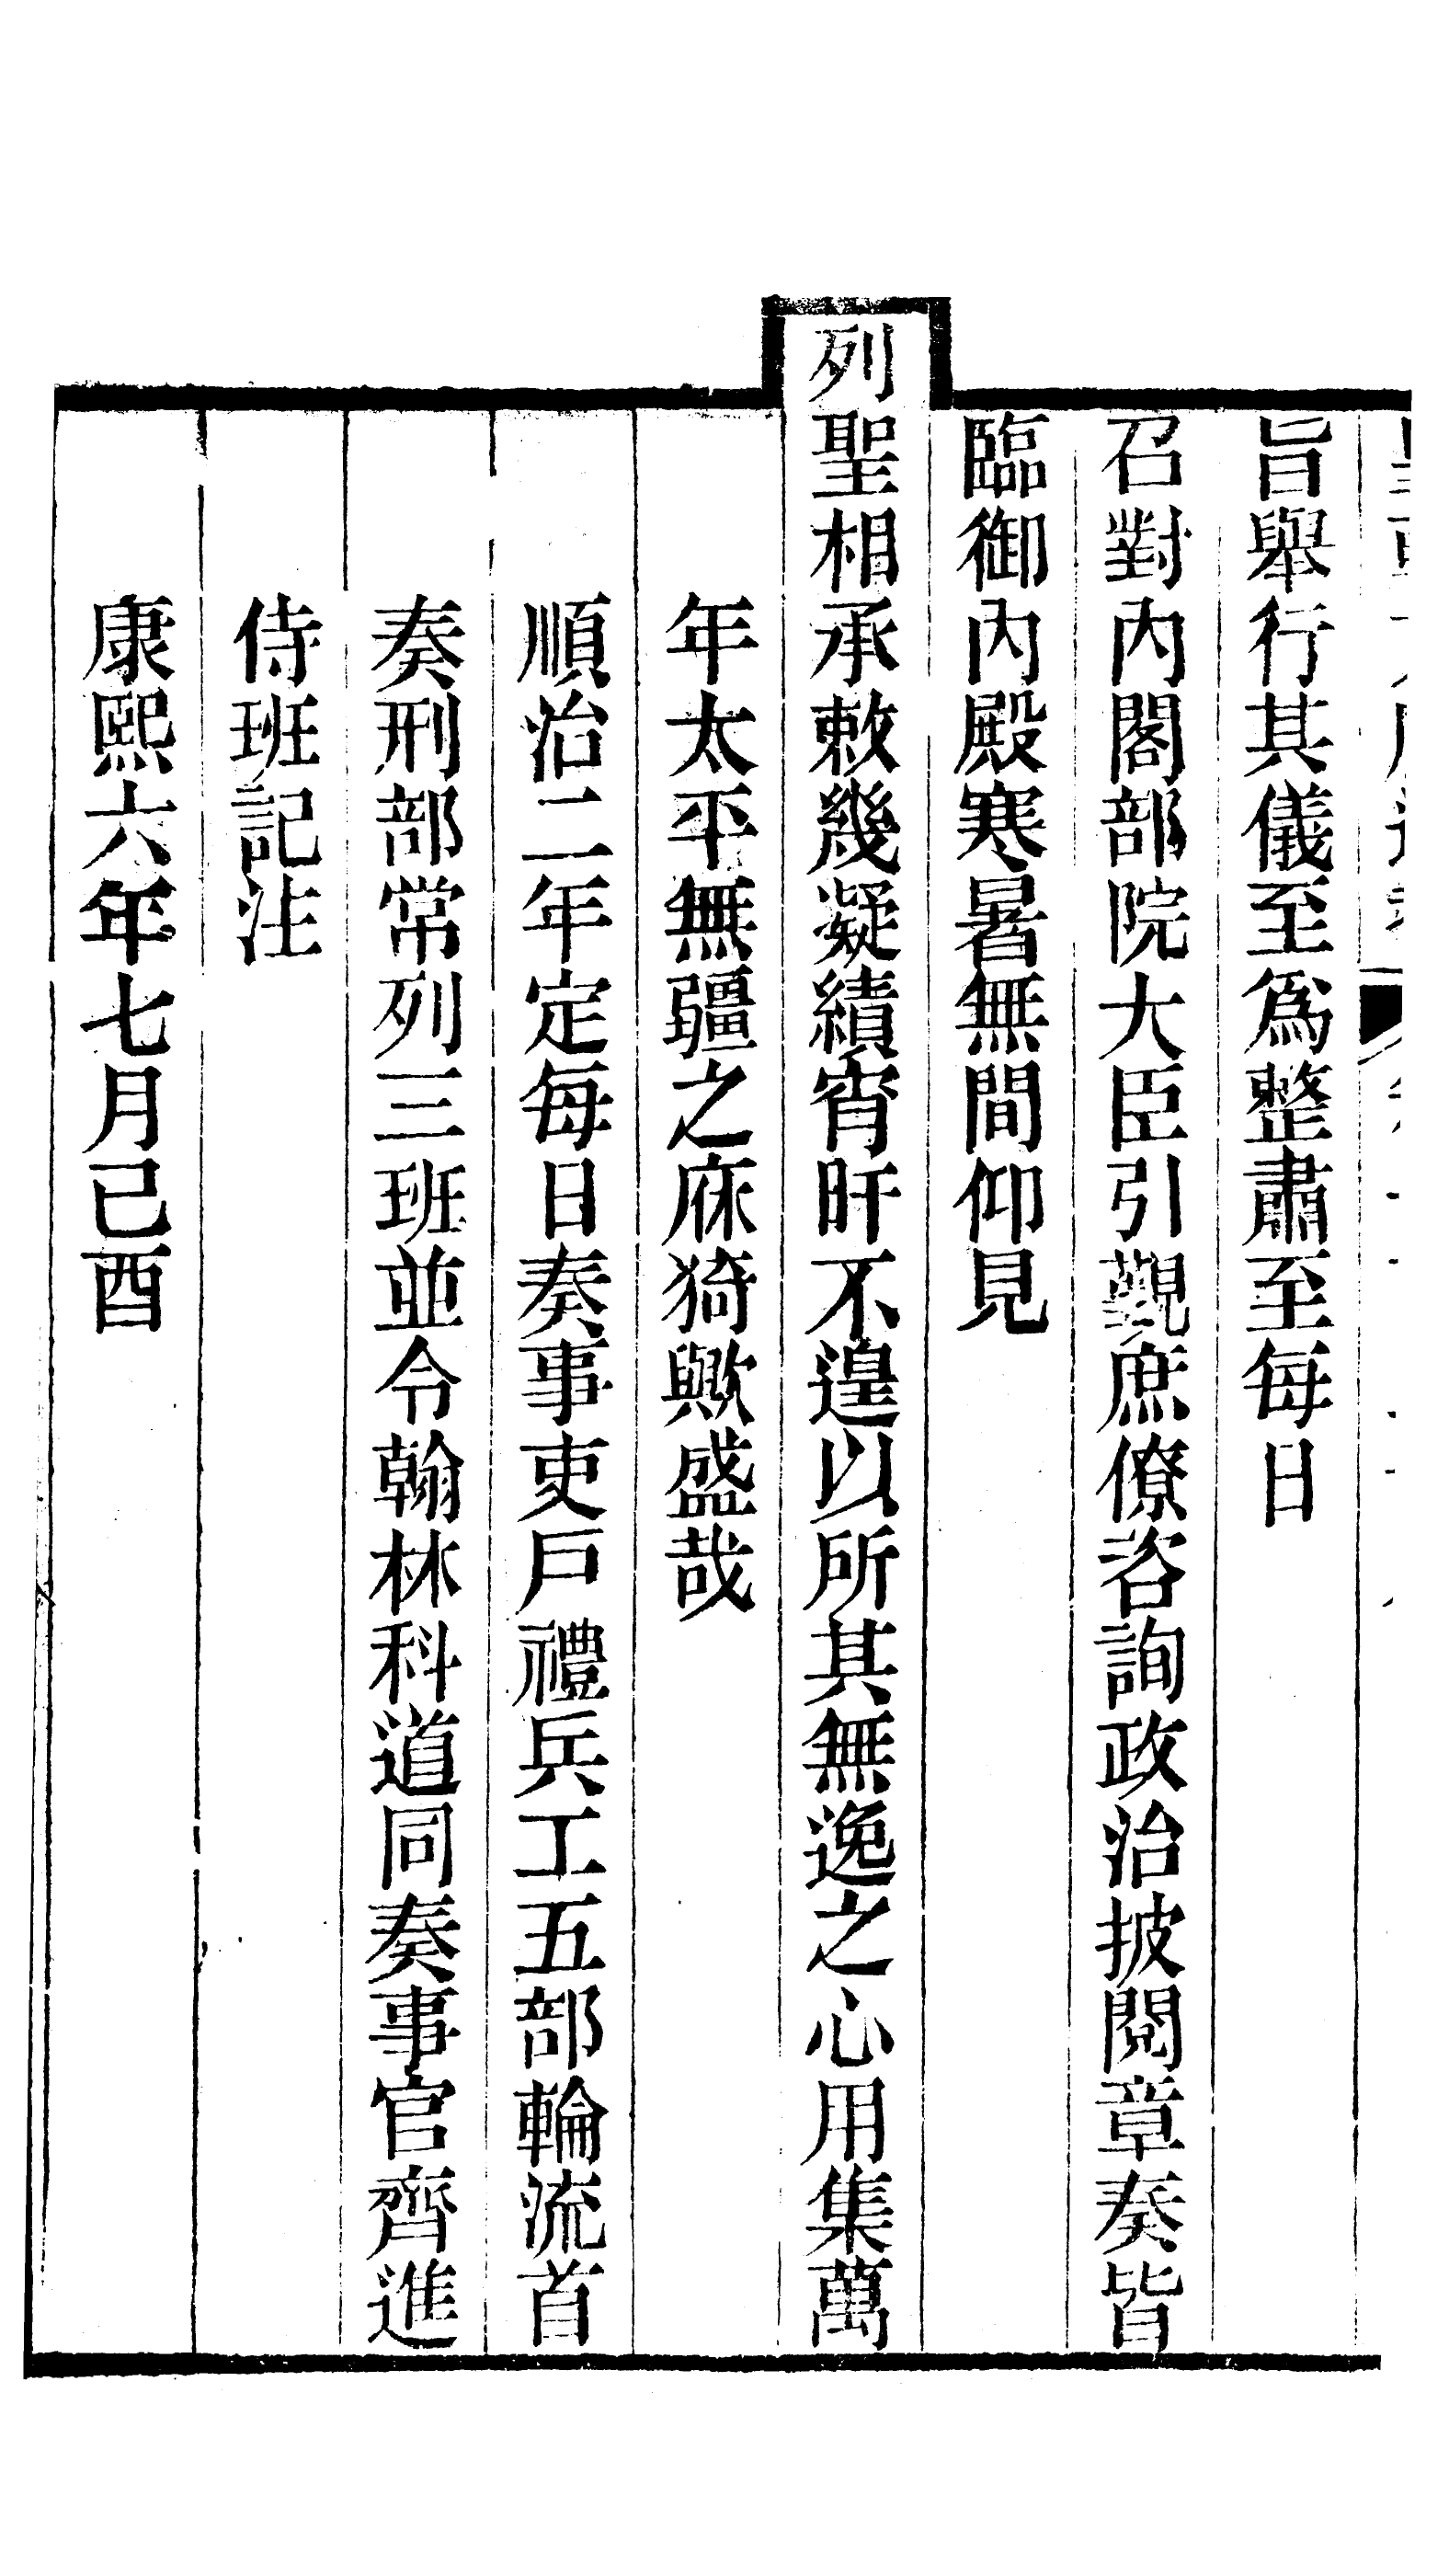 旨舉行其儀至爲整肅至每日
召對內閣部院大臣引觀庶僚咨詢政治披閱章奏皆
臨御內殿寒暑無間仰見
列聖相承敕幾凝績宵旰不遑以所其無逸之心用集萬
年太平無疆之庥猗歟盛哉
順治二年定每日奏事吏戶禮兵工五部輪流首
奏刑部常列三班並令翰林科道同奏事官齊進
侍班記注
康熙六年七月己酉